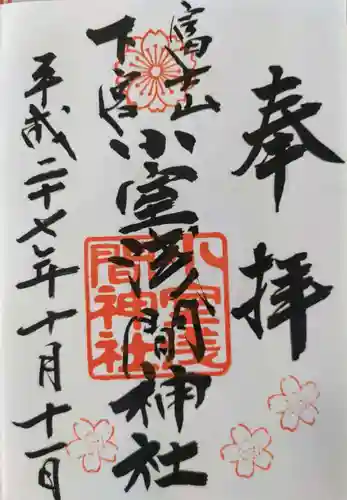 奉拝
富士山
下宮
小室浅間神社
小室浅間神社
平成二十七年十月十一日